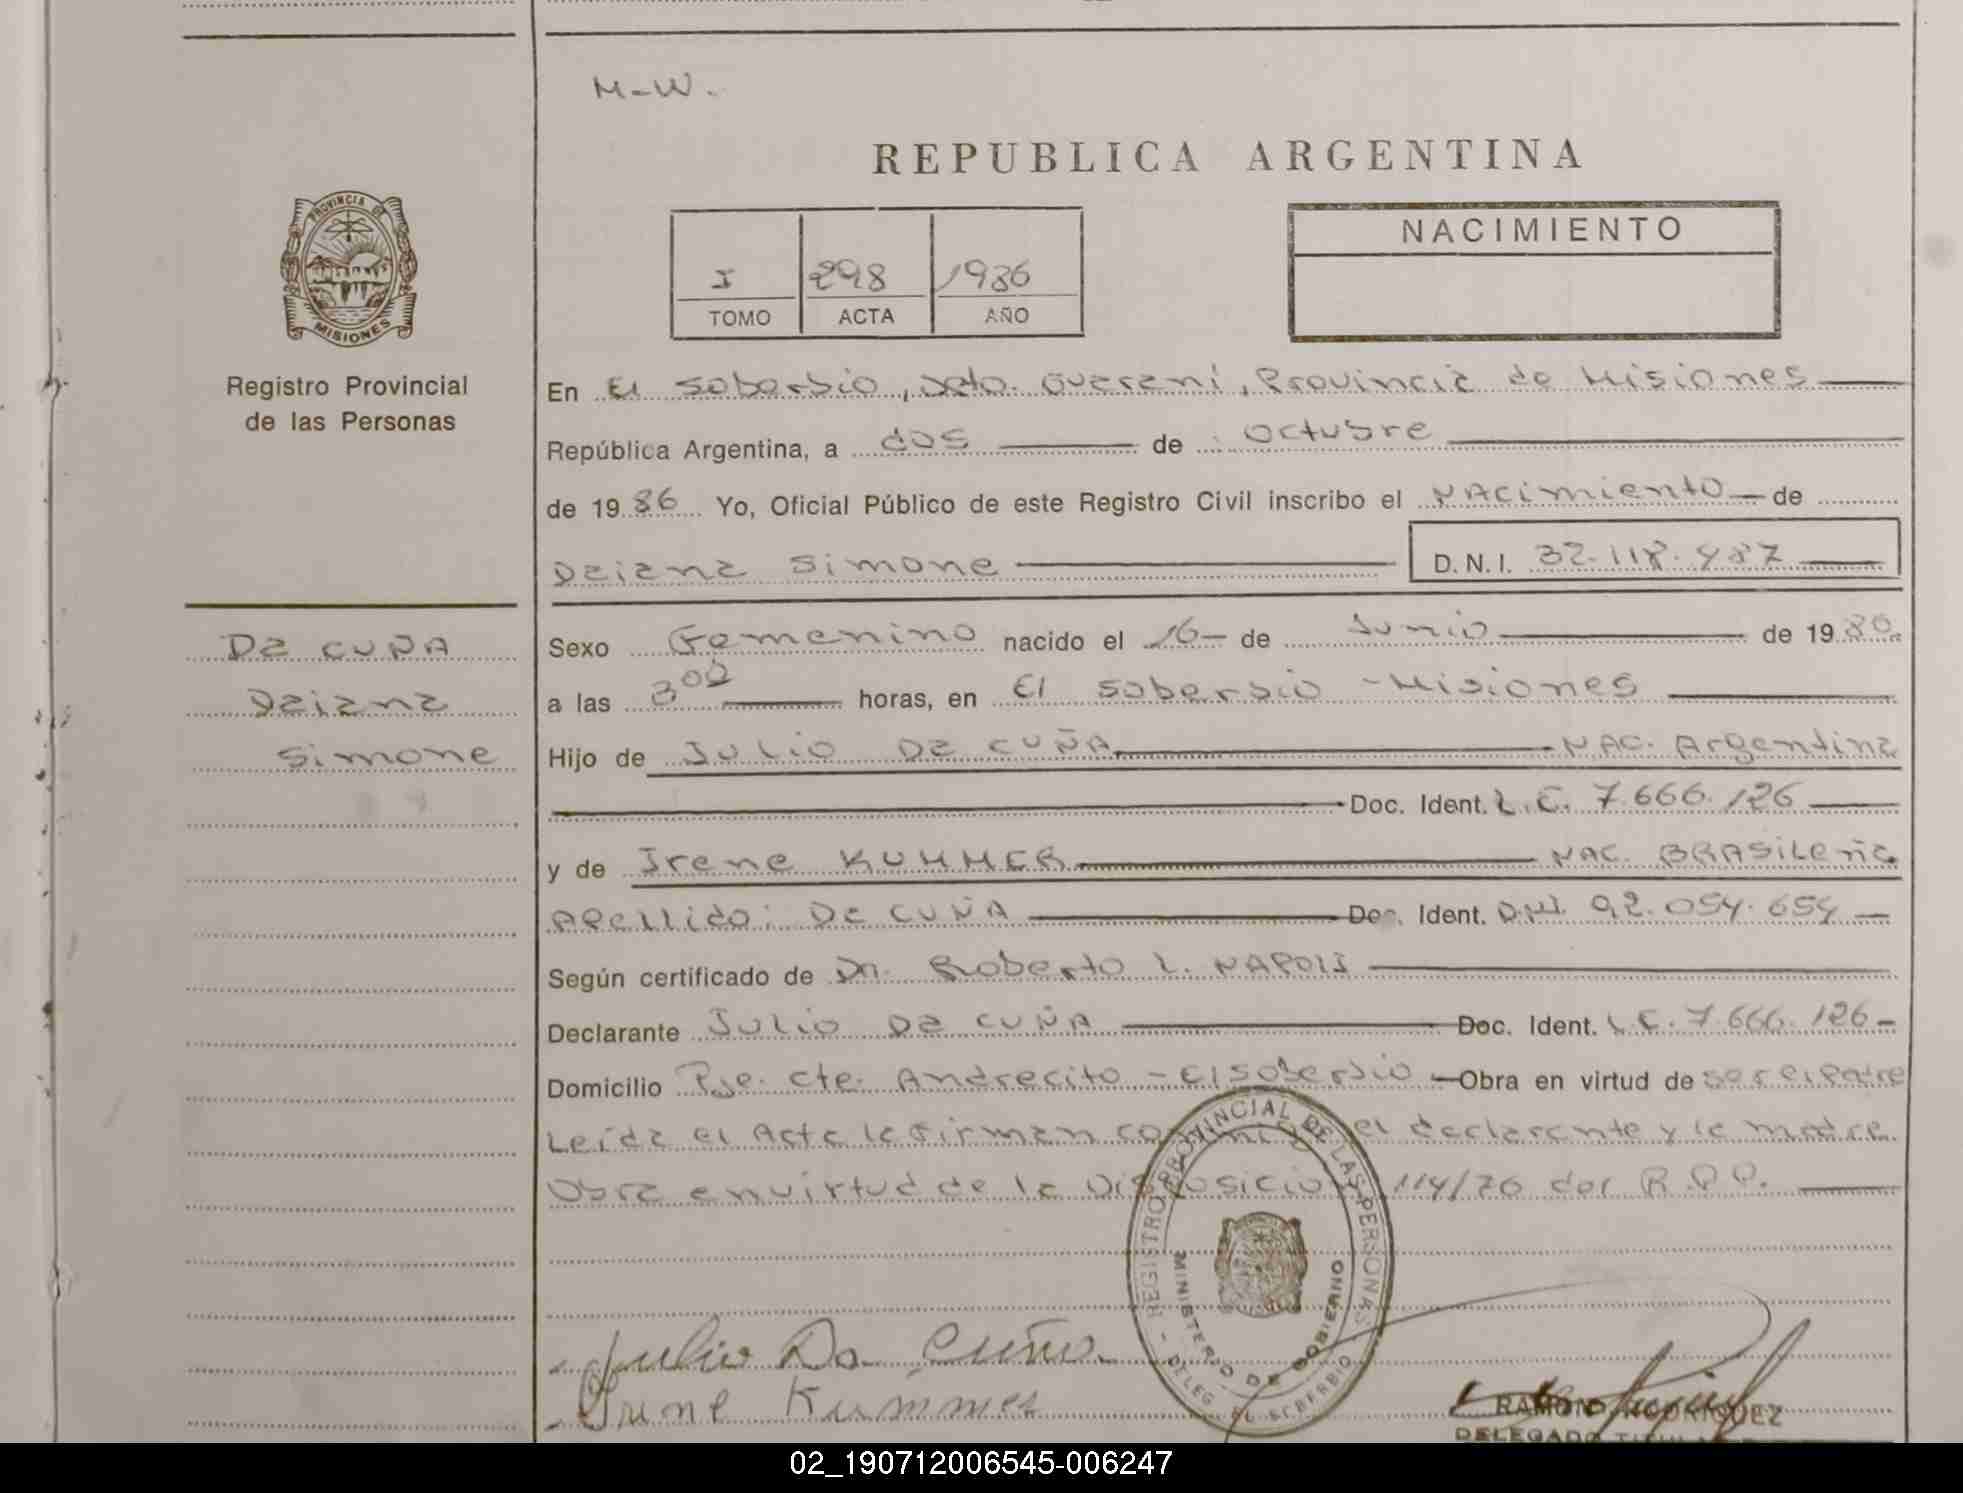 M-W.
REPUBLICA ARGENTINA
PROVINCIA DE
MISIONES
Registro Provincial
de las Personas
I 298 1986
TOMO ACTA AÑO
NACIMIENTO
En El Soberbio, Dpto. Guaraní, Provincia de Misiones
República Argentina, a dos de octubre
de 1986 Yo, Oficial Público de este Registro Civil inscribo el Nacimiento de
Daiana Simone D.N.I. 32.118.487
DA CUÑA
Daiana
Simone
Sexo Femenino nacido el 16 de Junio de 1980
a las 3 00 horas, en El Soberbio - Misiones
Hijo de JULIO DA CUÑA NAC. Argentina
Doc. Ident. L.E. 7.666.126
y de Irene KUMMER NAC. BRASILeña
Apellido: DA CUÑA Doc. Ident. D.N.I. 92.054.654
Según certificado de Dr. Roberto L. NAPOLI
Declarante JULIO DA CUÑA Doc. Ident. L.E. 7.666.126
Domicilio Pje. Cte. Andrecito - El Soberbio Obra en virtud de ser el Padre
Leída el Acta la firman conmigo el declarante y la madre
Obra en virtud de la Disposición 114/76 del R.P.P.
REGISTRO PROVINCIAL DE LAS PERSONAS
MINISTERIO DE GOBIERNO
DELEG. EL SOBERBIO
Julio Da Cuña
Irene Kümmer
RAMON RODRIGUEZ
DELEGADO TITULAR
02_190712006545-006247